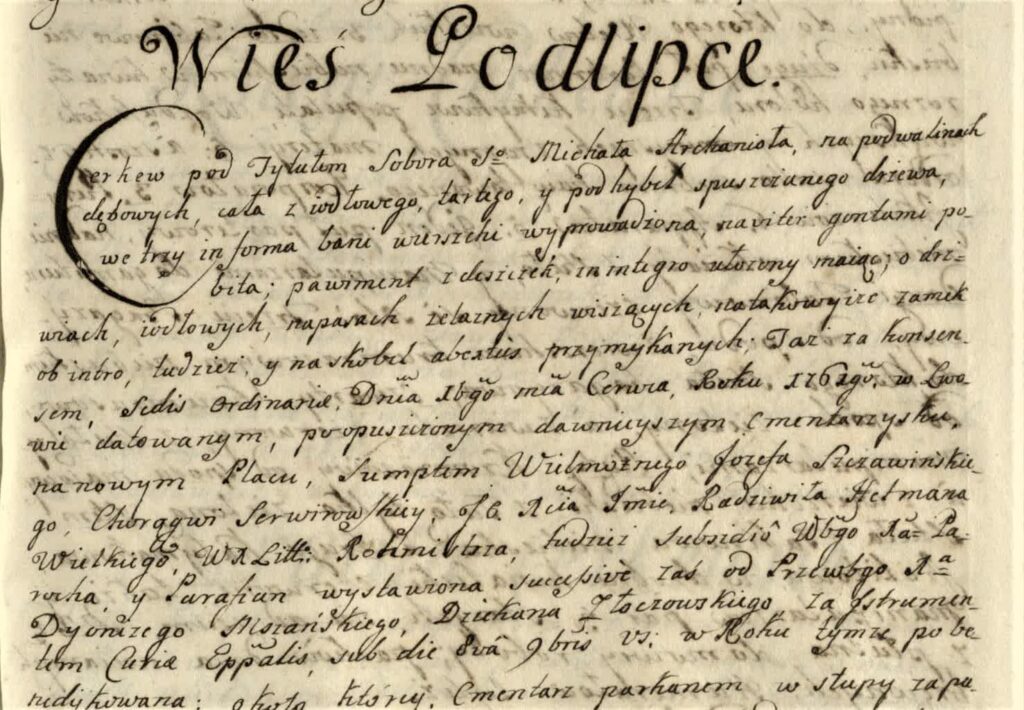 Wieś Podlipce.
Cerkew pod Tytułem Sobora So Michała Archanioła, na podwalinach
dębowych, cała z iodłowego, tartego, y pod hybel spuszczanego drzewa,
we trzy in forma bani wierszchi wyprowadzona, naviter gontami po-
bita; pawiment z deszczek, in integro ułozony maiąc; o drz-
wiach, iodłowych, na pasach zelaznych wiszących, zamek
ob intro, tudziez, y na skobel abextus przymykanych; Taz za konsen-
sem, Sedis Ordinariæ, Dnia 16go mca Cerwca, Roku, 1761go, w Lwo-
wie datowanym, po opuszczonym dawnieyszym Cmentarzysku,
na nowym Placu, Sumptem Wielmoznego Jozefa Szczawinskie-
go, Chorągwi Jmie, Radziwiła Hetmana
Wielkiego, W X Litt: Rotmistrza, tudziez subsidio Wbgo Xa Pa-
rocha, y Parafian wystawiona successive zaś od Przewbgo Xa
Dyonizego Mszańskiego, Dziekana Złoczowskiego, za Jstrumen-
tem Curiæ Eppalis, sub die 8va 9bris vs: w Roku tymze pobe-
nedykowana; około którey Cmentarz parkanem w słupy zapu-